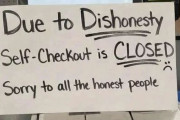 Due to Dishonesty
Self-Checkout is CLOSED
Sorry to all the honest people